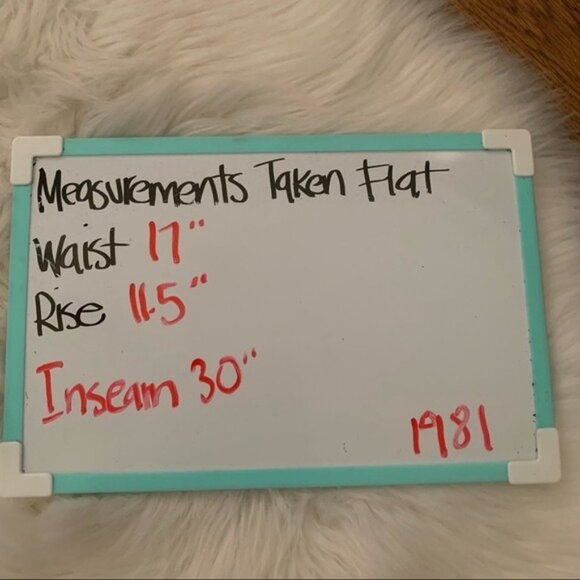 Measurements Taken Flat
Waist 17"
Rise 11.5"
Inseam 30"
1981